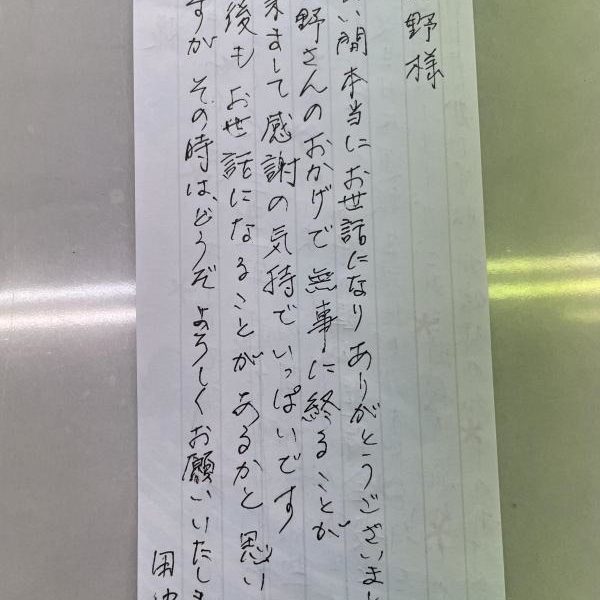 野様
い間本当にお世話になりありがとうございまし
野さんのおかげで無事に終ることが
来まして感謝の気持でいっぱいです
後もお世話になることがあるかと思い
すが その時は、どうぞよろしくお願いいたしま